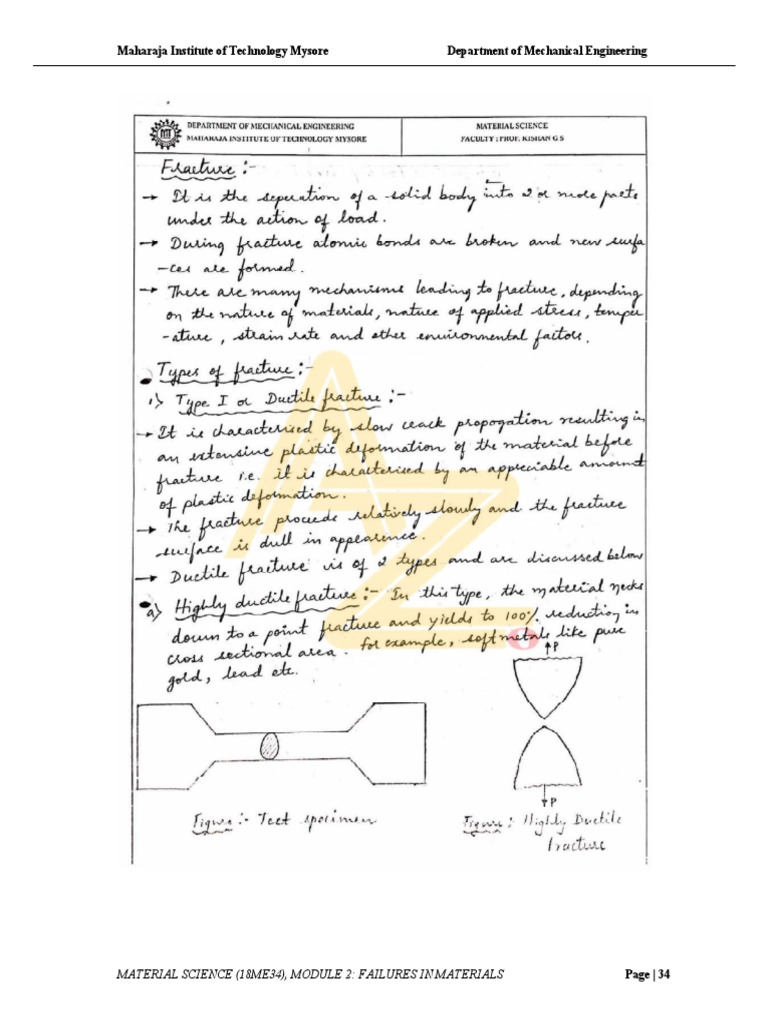 Maharaja Institute of Technology Mysore Department of Mechanical Engineering
DEPARTMENT OF MECHANICAL ENGINEERING MATERIAL SCIENCE
MAHARAJA INSTITUTE OF TECHNOLOGY MYSORE FACULTY : PROF. KISHAN G S
Fracture :-
→ It is the seperation of a solid body into 2 or more parts
under the action of load.
→ During fracture atomic bonds are broken and new surfa
-ces are formed.
→ There are many mechanisms leading to fracture, depending
on the nature of materials, nature of applied stress, temper
-ature, strain rate and other environmental factors.
Types of fracture :-
1) Type I or Ductile fracture :-
→ It is characterised by slow crack propogation resulting in
an extensive plastic deformation of the material before
fracture i.e. it is characterised by an appreciable amount
of plastic deformation.
→ The fracture proceeds relatively slowly and the fracture
surface is dull in appearence.
→ Ductile fracture is of 2 types and are discussed below
a) Highly ductile fracture :- In this type, the material necks
down to a point fracture and yields to 100% reduction in
cross sectional area. for example, soft metals like pure
gold, lead etc.
P
P
Figure :- Test specimen
Figure : Highly Ductile
fracture
MATERIAL SCIENCE (18ME34), MODULE 2: FAILURES IN MATERIALS Page | 34